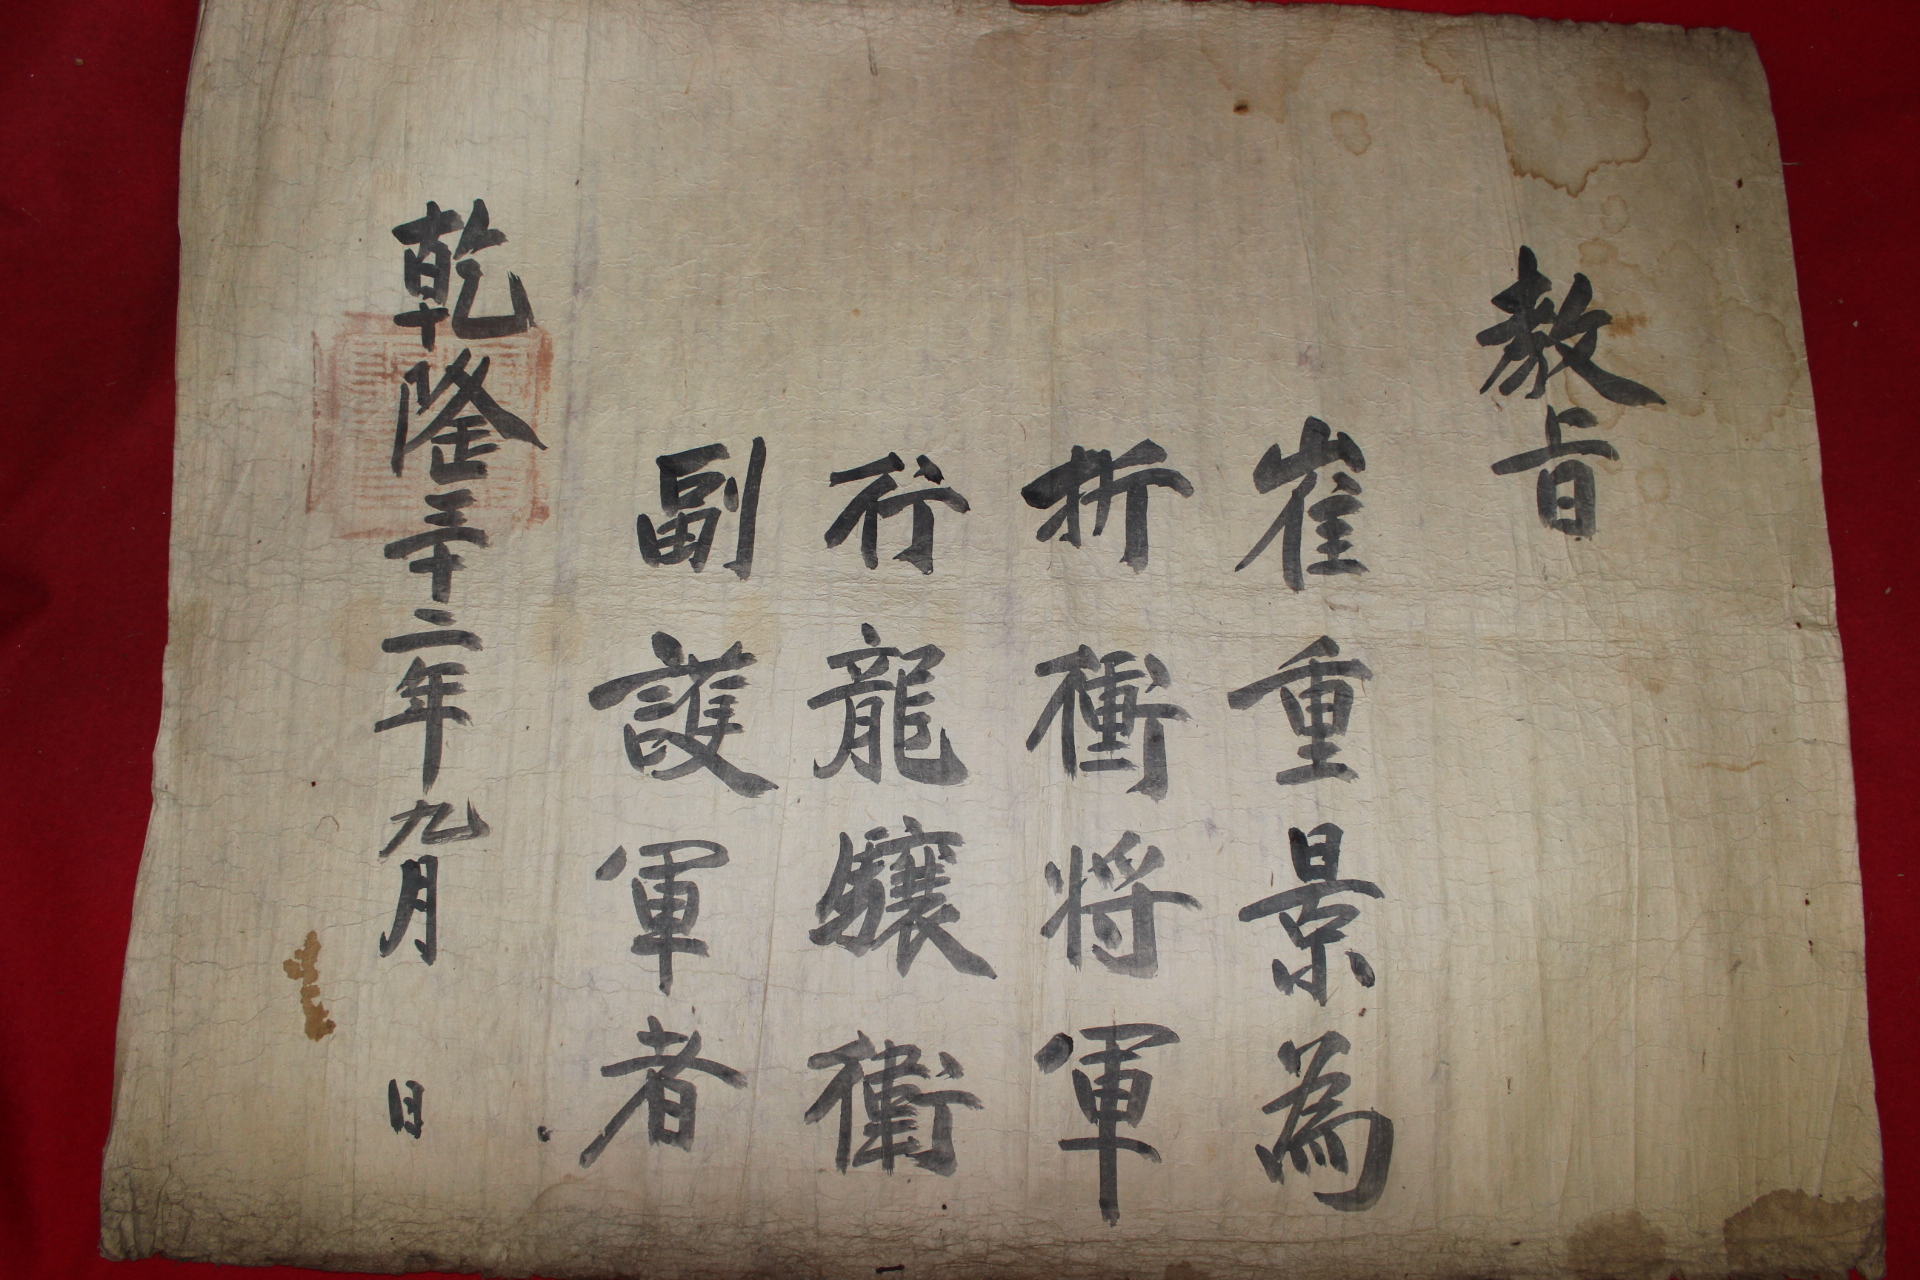 敎旨
崔重景為
折衝将軍
行龍驤衛
副護軍者
乾隆三十二年九月 日